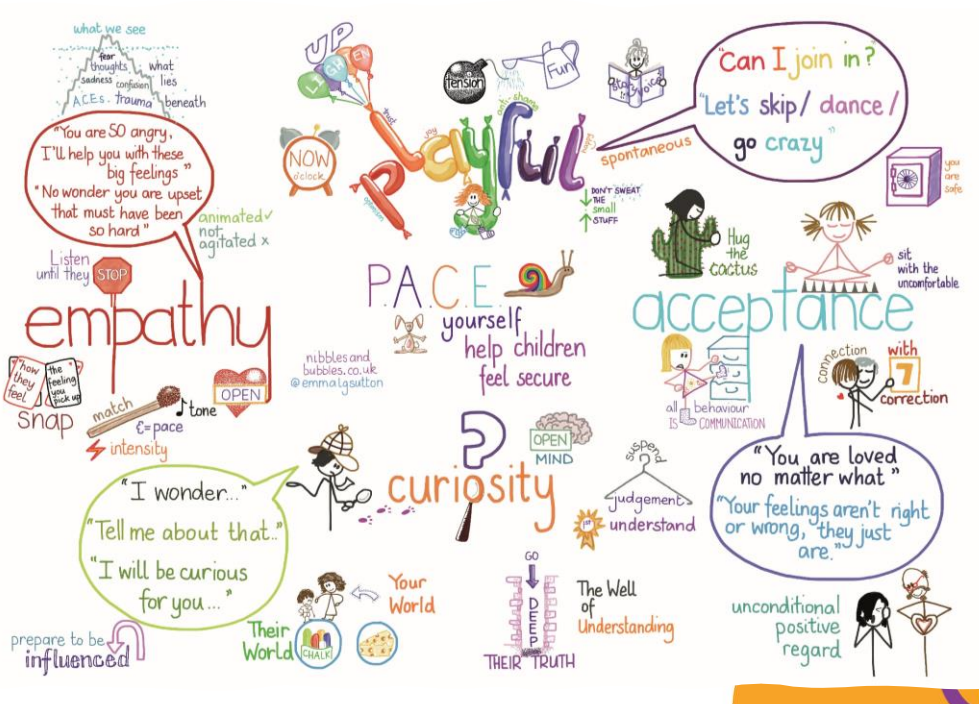 what we see
fear
thoughts
sadness confusion
ACEs. trauma
what
lies
beneath
"You are SO angry,
I'll help you with these
big feelings"
"No wonder you are upset
that must have been
so hard"
animated ✓
not
agitated x
Listen
until they
STOP
empathy
"how
they
feel"
the
feeling
you
pick up
snap
match
tone
€=pace
intensity
OPEN
UP
LIFTER
trust
joy
tension
Fun
story
voices
NOW
o'clock
Playful
spontaneous
DON'T SWEAT
THE
small
STUFF
"Can I join in?"
"Let's skip/ dance/
go crazy"
you
are
safe
P.A.C.E.
yourself
help children
feel secure
nibbles and
bubbles.co.uk
@emmalgsutton
Hug
the
cactus
sit
with the
uncomfortable
acceptance
all behaviour
IS COMMUNICATION
connection
with
7
correction
"You are loved
no matter what"
"Your feelings aren't right
or wrong, they just
are."
unconditional
positive
regard
?
OPEN
MIND
curiosity
suspend
judgement
1st
understand
"I wonder..."
"Tell me about that.."
"I will be curious
for you..."
prepare to be
influenced
Your
World
Their
World
CHALK
GO
DEEP
THEIR TRUTH
The Well
of
Understanding